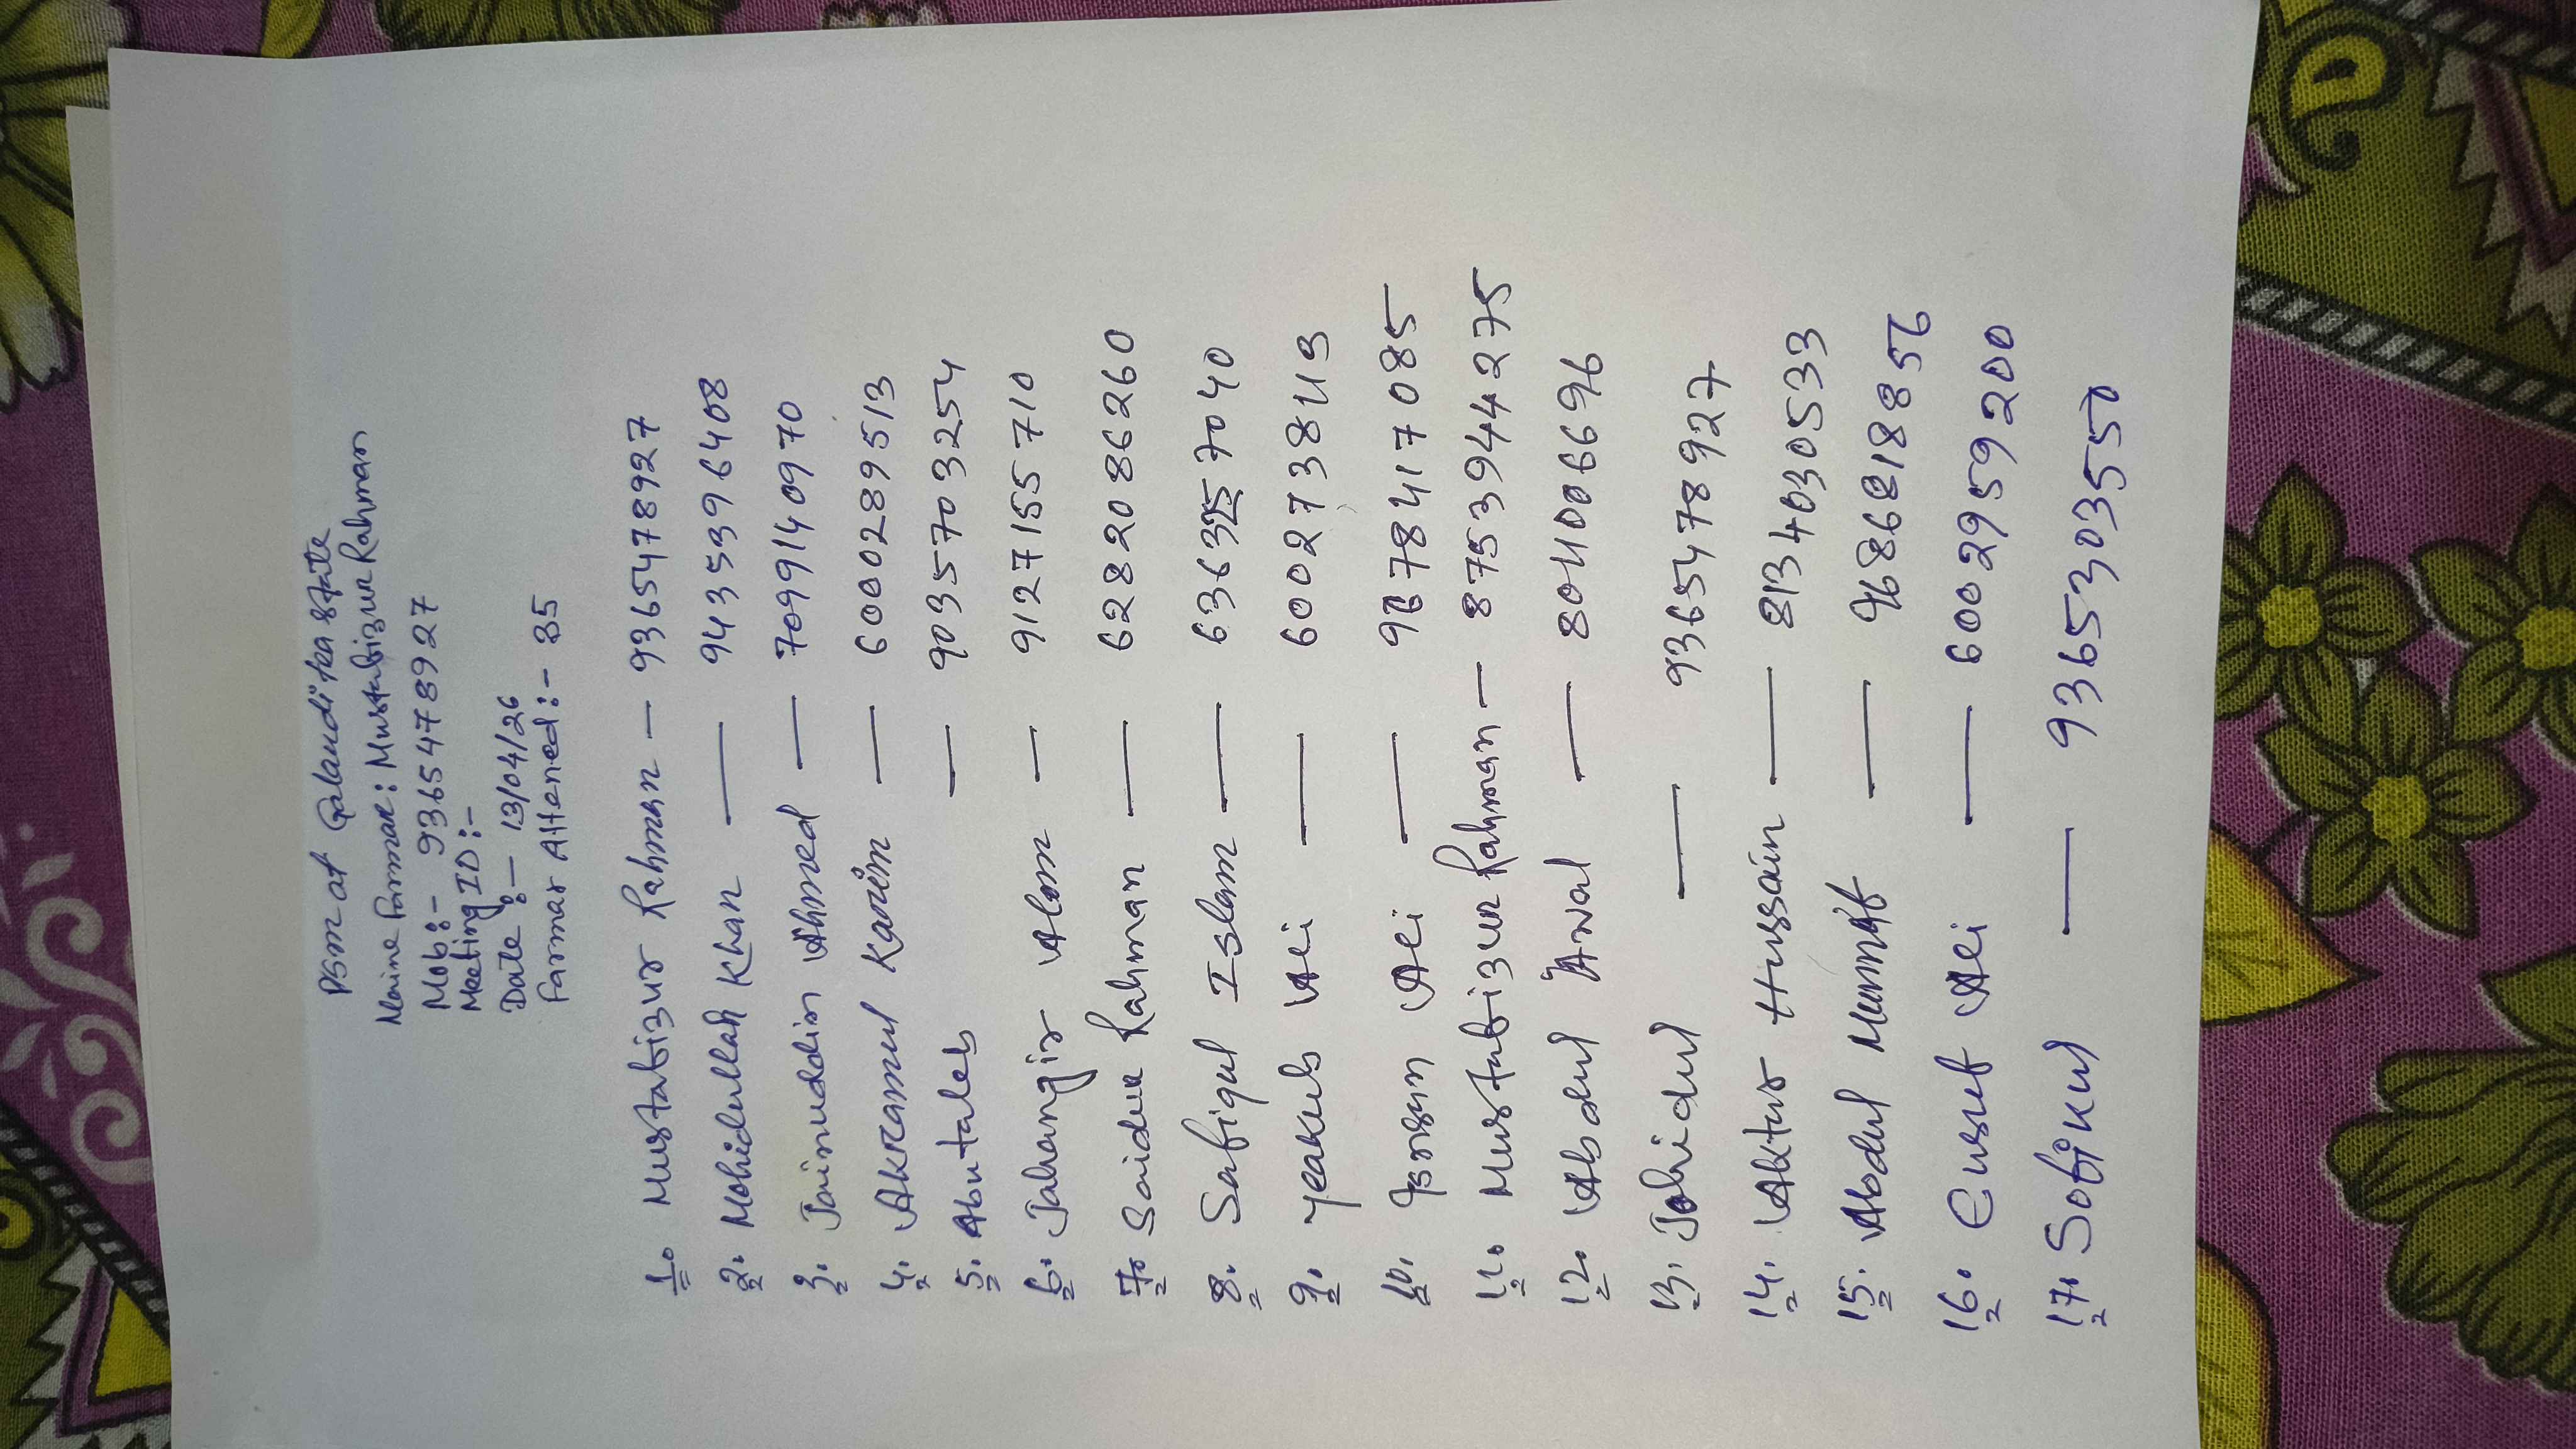 PSM at Galandi tea state
Naime Farmar: Mustabizur Rahman
Mob:- 9365478927
Meeting ID:-
Date:- 13/04/26
Farmar Attened:- 35
1. Mustabizur Rahman - 9365478927
2. Mohidullah Khan - 9435396408
3. Jainuddin Ahmed - 7099140970
4. Akramul Karim - 6000289513
5. Abutaleb - 9035703254
6. Jahangir Alom - 9127155710
7. Saidur Rahman - 6282086260
8. Safiqul Islam - 6363257040
9. yeakub Ali - 6002738419
10. Ali - 9678417085
11. Mustabizur Rahman - 8753944275
12. Abdul Awal - 8041006696
13. Johidul - 9365478927
14. Aktar Hussain - 8134030533
15. Abdul Munnaf - 9686218856
16. Eusuf Ali - 6002959200
17. Sofikul - 9365303550